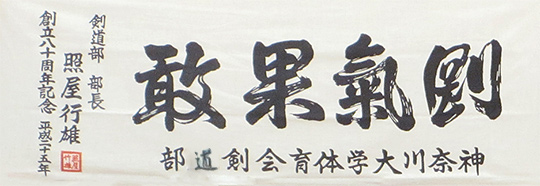 剛氣果敢
神奈川大学体育会剣道部
剣道部 部長
照屋行雄
創立八十周年記念 平成二十五年
照屋行雄